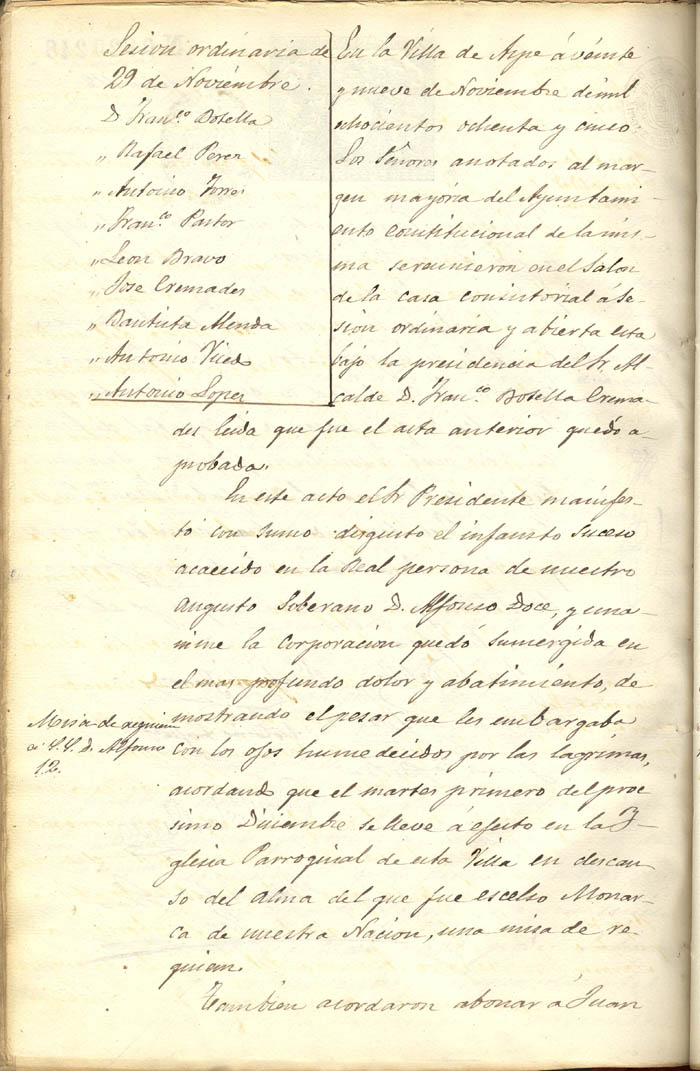 Sesion ordinaria de
29 de Noviembre.
D Fran.co Botella
" Rafael Perez
" Antonio Torres
" Fran.co Pastor
" Leon Bravo
" Jose Cremades
" Bautista Menda
" Antonio
" Antonio Lopez
En la Villa de Aspe á veinte
y nueve de Noviembre de mil
ochocientos ochenta y cinco:
Los Señores anotados al mar-
gen mayoria del Ayuntami-
ento Constitucional de la mis-
ma se reunieron en el Salon
de la casa consistorial á Se-
sion ordinaria y abierta esta
bajo la presidencia del Sr Al-
calde D. Fran.co Botella Crema-
des leida que fue el acta anterior quedó a-
probada.
En este acto el Sr Presidente manifes-
tó con sumo disgusto el infausto suceso
acaecido en la Real persona de nuestro
Augusto Soberano D. Alfonso Doce, y una-
nime la Corporacion quedó sumergida en
el mas profundo dolor y abatimiento, de
mostrando el pesar que les embargaba
con los ojos humedecidos por las lagrimas,
acordando que el martes primero del proc
simo Diciembre se lleve á efecto en la I-
glesia Parroquial de esta Villa en descan
so del alma del que fue escelso Monar-
ca de nuestra Nacion, una misa de re-
quiem.
Tambien acordaron abonar á Juan
Misa de requiem
á S.S. D. Alfonso
12.